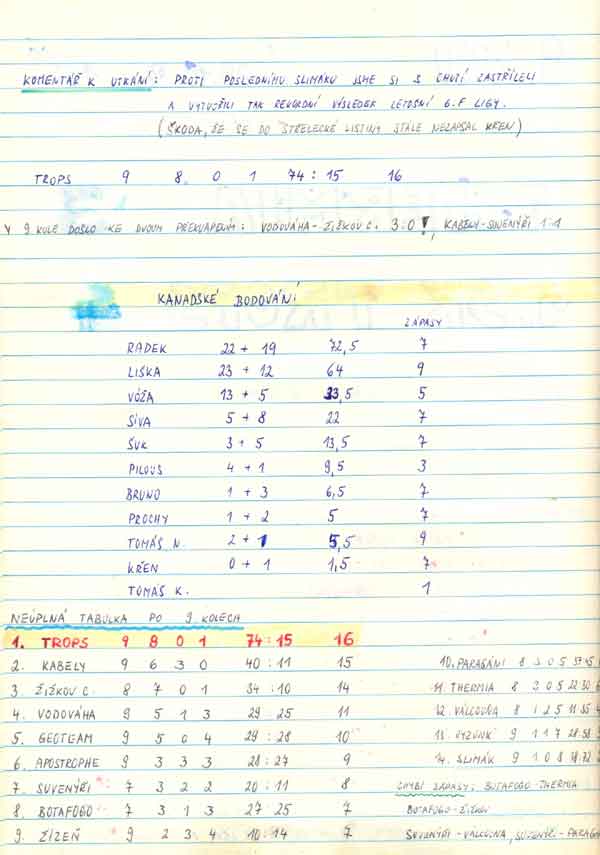 KOMENTÁŘ K UTKÁNÍ: PROTI POSLEDNÍMU SLIMÁKU JSME SI S CHUTÍ ZASTŘÍLELI
A VYTVOŘILI TAK REKORDNÍ VÝSLEDEK LETOŠNÍ 6.F LIGY.
(ŠKODA, ŽE SE DO STŘELECKÉ LISTINY STÁLE NEZAPSAL KŘEN)
TROPS 9 8 0 1 74:15 16
V 9 KOLE DOŠLO KE DVOUM PŘEKVAPENÍM: VODOVÁHA-ŽIŽKOV C. 3:0!, KABELY-SUVENÝŘI 1:1
KANADSKÉ BODOVÁNÍ
ZÁPASY
RADEK 22 + 19 72,5 7
LIŠKA 23 + 12 64 9
VÓŽA 13 + 5 33,5 5
SÍVA 5 + 8 22 7
ŠUK 3 + 5 13,5 7
PILOUS 4 + 1 9,5 3
BRUNO 1 + 3 6,5 7
PROCHY 1 + 2 5 7
TOMÁŠ N. 2 + 1 5,5 9
KŘEN 0 + 1 1,5 7
TOMÁŠ K. 1
NEÚPLNÁ TABULKA PO 9 KOLECH
1. TROPS 9 8 0 1 74:15 16
2. KABELY 9 6 3 0 40:11 15
3 ŽIŽKOV C. 8 7 0 1 34:10 14
4. VODOVÁHA 9 5 1 3 29:25 11
5. GEOTEAM 9 5 0 4 29:28 10
6. APOSTROPHE 9 3 3 3 28:27 9
7. SUVENÝŘI 7 3 2 2 20:11 8
8. BOTAFOGO 7 3 1 3 27:25 7
9. ŽÍZEŇ 9 2 3 4 10:14 7
10. PARAGÁNI 8 3 0 5
11. THERMIA 8 3 0 5 22:30
12. VÁLCOVNA 8 1 2 5
13. 9 1 1 7 28:58
14. SLIMÁK 9 1 0 8
CHYBÍ ZÁPASY: BOTAFOGO-THERMIA
BOTAFOGO-ŽIŽKOV
SUVENÝŘI-VÁLCOVNA, SUVENÝŘI-PARAGÁ